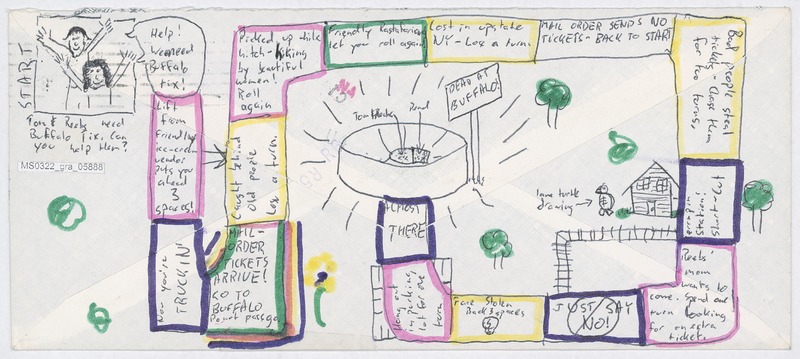 START
Help!
We need
Buffalo
tix!
Tom & Reeb need
Buffalo tix, can
you help them?
MS0322_gra_05888
Lift
from
friendly
ice-cream
vendor
puts you
ahead
3
spaces!
Now you're
TRUCKIN'
MAIL-
ORDER
TICKETS
ARRIVE!
GO TO
BUFFALO
Do not pass go
Caught behind
Old people
Lose a turn.
Picked up hitch-hiking
by beautiful
women!
Roll
again
Friendly Rastafarians
let you roll again
Lost in upstate
NY - Lose a turn
MAIL ORDER SENDS NO
TICKETS - BACK TO START
Bad people steal
tickets - chase them
for two turns.
Reebs'
mom
wants to
come. Spend one
turn looking
for an extra
ticket.
JUST SAY
NO!
Tire Stolen
Back 3 spaces
Hang out
in parking
lot for one
turn
ALMOST
THERE
DEAD AT
BUFFALO!
Band
lame turtle
drawing →